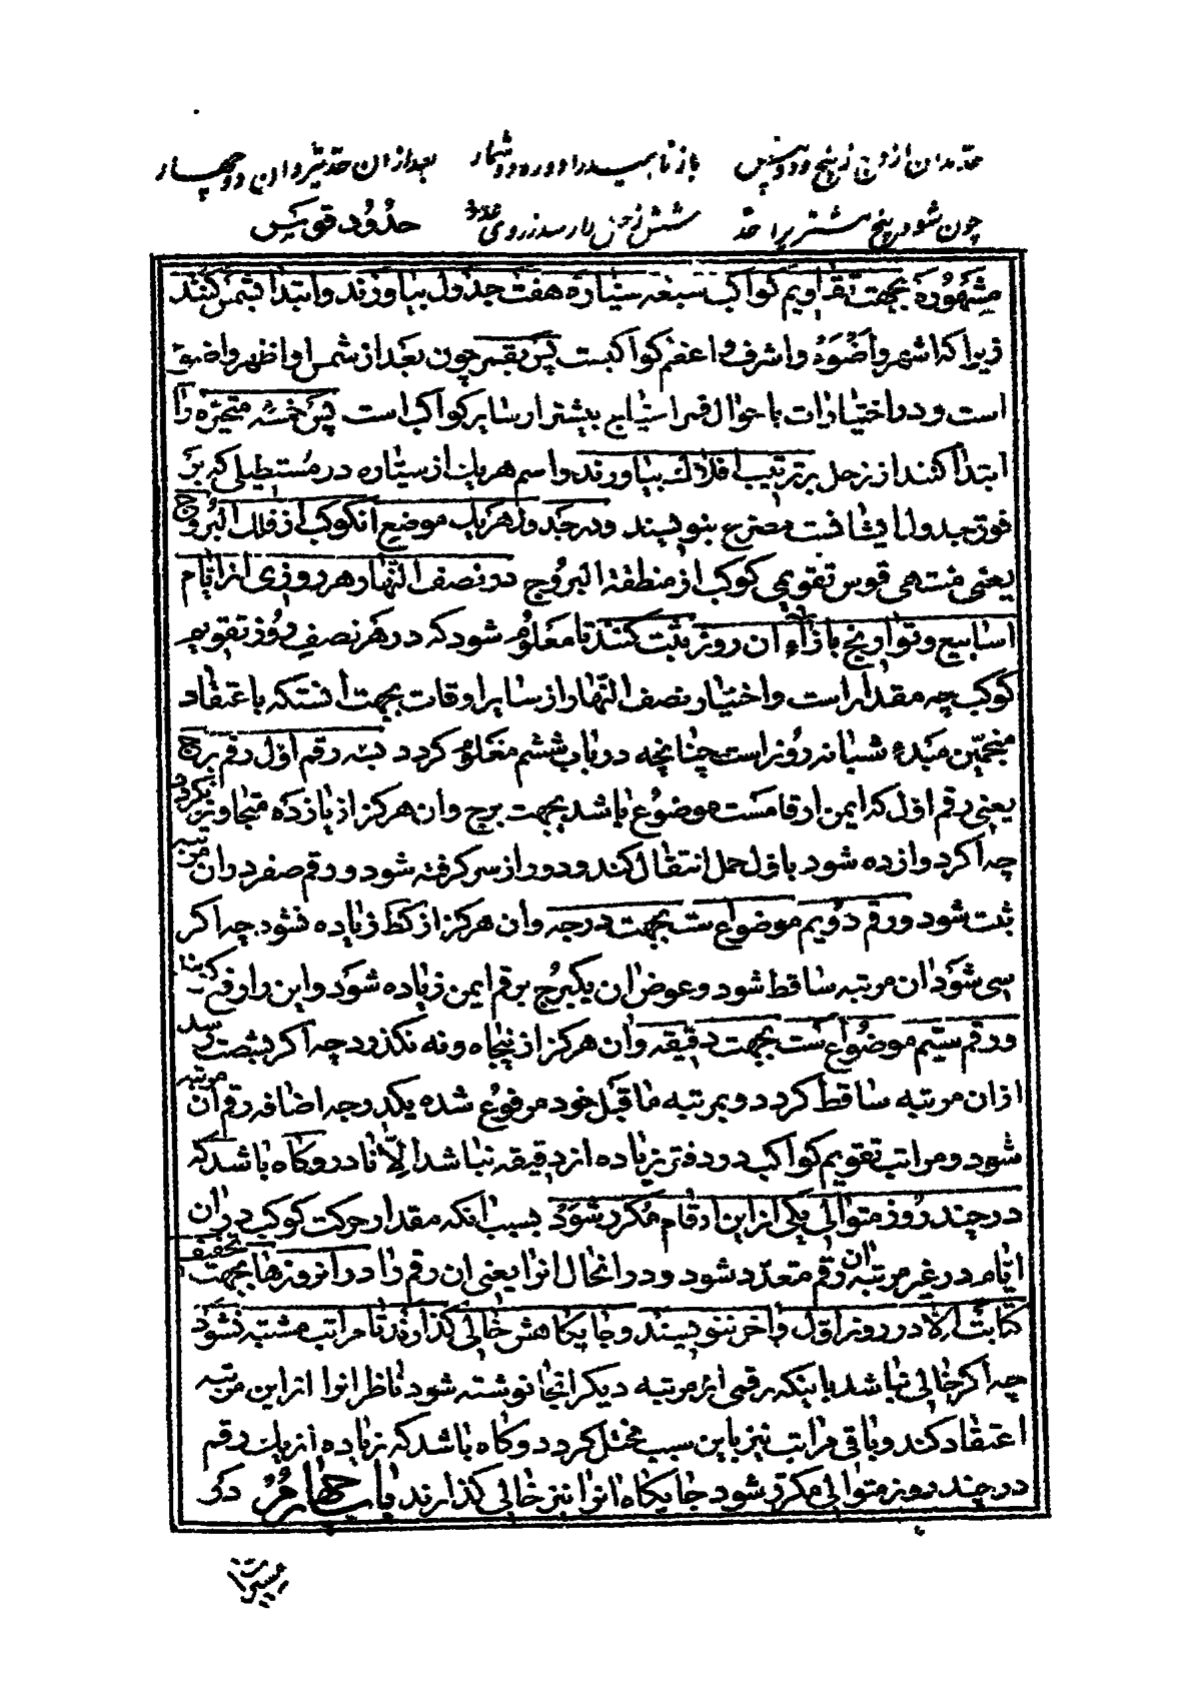 باز تا بعد از ان
چون شود پنج مشتریرا حدّ شش حدود قوس
مشهوره بجهت تقاویم کواکب سبعه سیّاره هفت جدول بیاورند وابتدا بشمس کنند
زیرا که اشهر واضوء واشرف واعظم کواکبست پس بقمر چون بعد از شمس او اظهر واضوء
است ودر اختیارات باحوال قمر احتیاج بیشتر از سایر کواکب است پس خمسه متحیّره را
ابتدا کنند از زحل بر ترتیب افلاک بیاورند واسم هر یک از سیّاره در مستطیلی که بر
فوق جدول ایشانست بنویسند ودر جدول هر یک موضع انکوکب از فلک البروج
یعنی منتهی قوس تقویمی کوکب از منطقة البروج در نصف النّهار هر روزی از ایّام
اسابیع وتواریخ بازاء ان روز ثبت کنند تا معلوم شود که در هر نصف روز تقویم
کوکب چه مقدار است واختیار نصف النّهار از سایر اوقات بجهت انستکه باعتقاد
منجّمین مبدء شبانه روز است چنانچه در باب ششم معلوم کردد بسه رقم اوّل رقم برج
یعنی رقم اوّل که ایمن ارقامست موضوع باشد بجهت برج وان هرکز از یازده متجاوز نکردد
چه اکر دوازده شود باوّل حمل انتقال کند ودور از سر کرفته شود ورقم صفر در ان مرتبه
ثبت شود ورقم دویم موضوع ست بجهت درجه وان هرکز از کط زیاده نشود چه اکر
سی شود ان مرتبه ساقط شود وعوض ان یکبرج برقم ایمن زیاده شود واین را رفع کویند
ورقم سیّم موضوع ست بجهت دقیقه وان هرکز از پنجاه ونه نکذرد چه اکر بشصت رسد
از ان مرتبه ساقط کردد وبمرتبه ماقبل خود مرفوع شده یکدرجه اضافه رقم ان مرتبه
شود ومراتب تقویم کواکب در دفتر زیاده از دقیقه نباشد الّا نادر وکاه باشد که
در چند روز متوالی یکی از این ارقام مکرر شود بسبب انکه مقدار حرکت کوکب در ان
ایّام در غیر مرتبه ان رقم متعدّد شود ودر انحال انرا یعنی ان رقم را در انروزها بجهت تخفیف
کتابت الّا در روز اوّل واخر ننویسند وجایکاهش خالی کذارند تا مراتب مشتبه نشود
چه اکر خالی نباشد باینکه رقمی از مرتبه دیکر انجا نوشته شود ناظر انرا از این مرتبه
اعتقاد کند وباقی مراتب نیز باین سبب مختل کردد وکاه باشد که زیاده از یک رقم
در چند روز متوالی مکرّر شود جایکاه انرا نیز خالی کذارند باب چهارم در